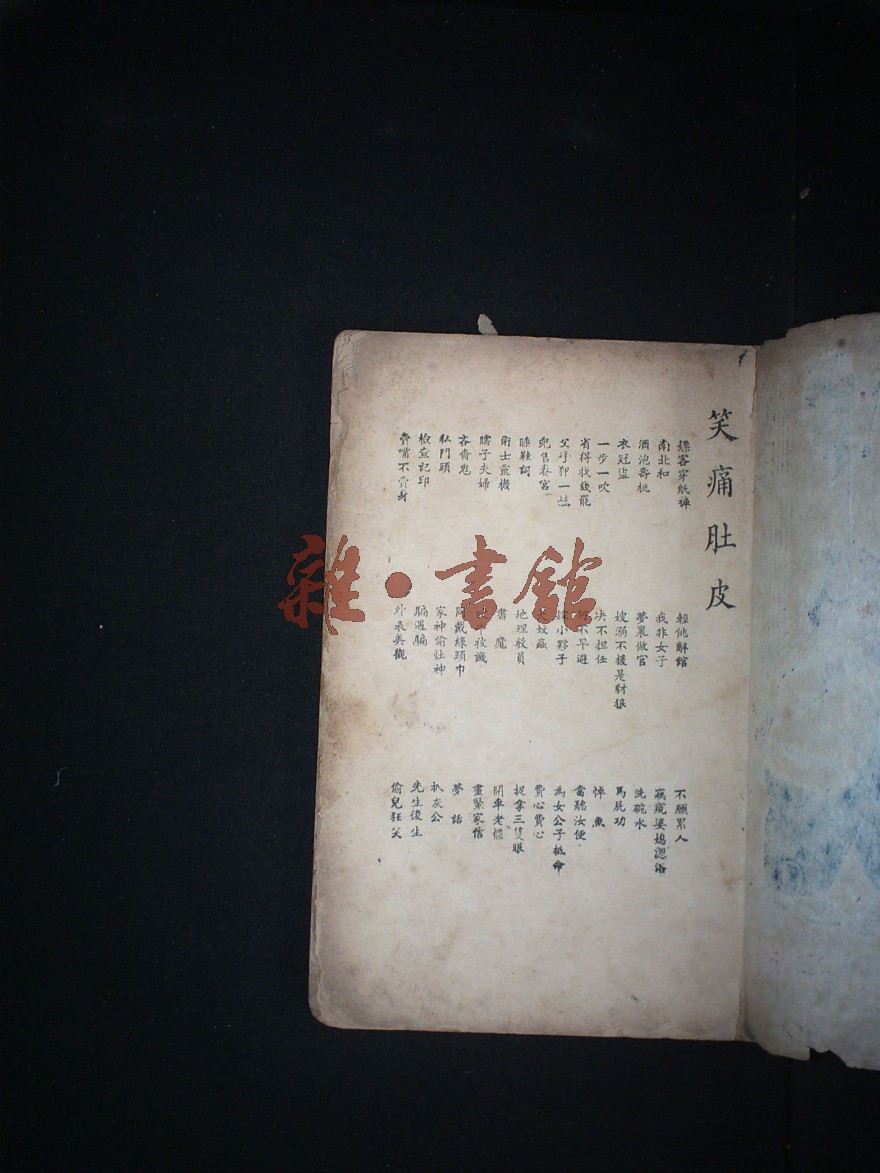 笑痛肚皮
嫖客穿紙褲
南北和
酒泡壽桃
衣冠盜
一步一吹
省得找錢罷
父母卵一
兜售春宮
睡鞋詞
術士靈機
瞎子夫婦
吝嗇鬼
私門頭
檢查記印
賣嘴不賣身
輕佻辭館
我非女子
夢裏做官
嫂溺不援是豺狼
决不担任
不早避
小夥子
蚊蟲
地理教員
書魔
被譏
戴綠頭巾
家神偷灶神
騙遇騙
外表美觀
不願累人
竊窺婆媳浴
洗碗水
馬屁功
悼魚
當聽汝便
為女公子抵命
費心費心
捉拿三隻眼
開車老
畫蘭家信
夢話
扒灰公
先生復生
偷兒狂笑
雜·書館